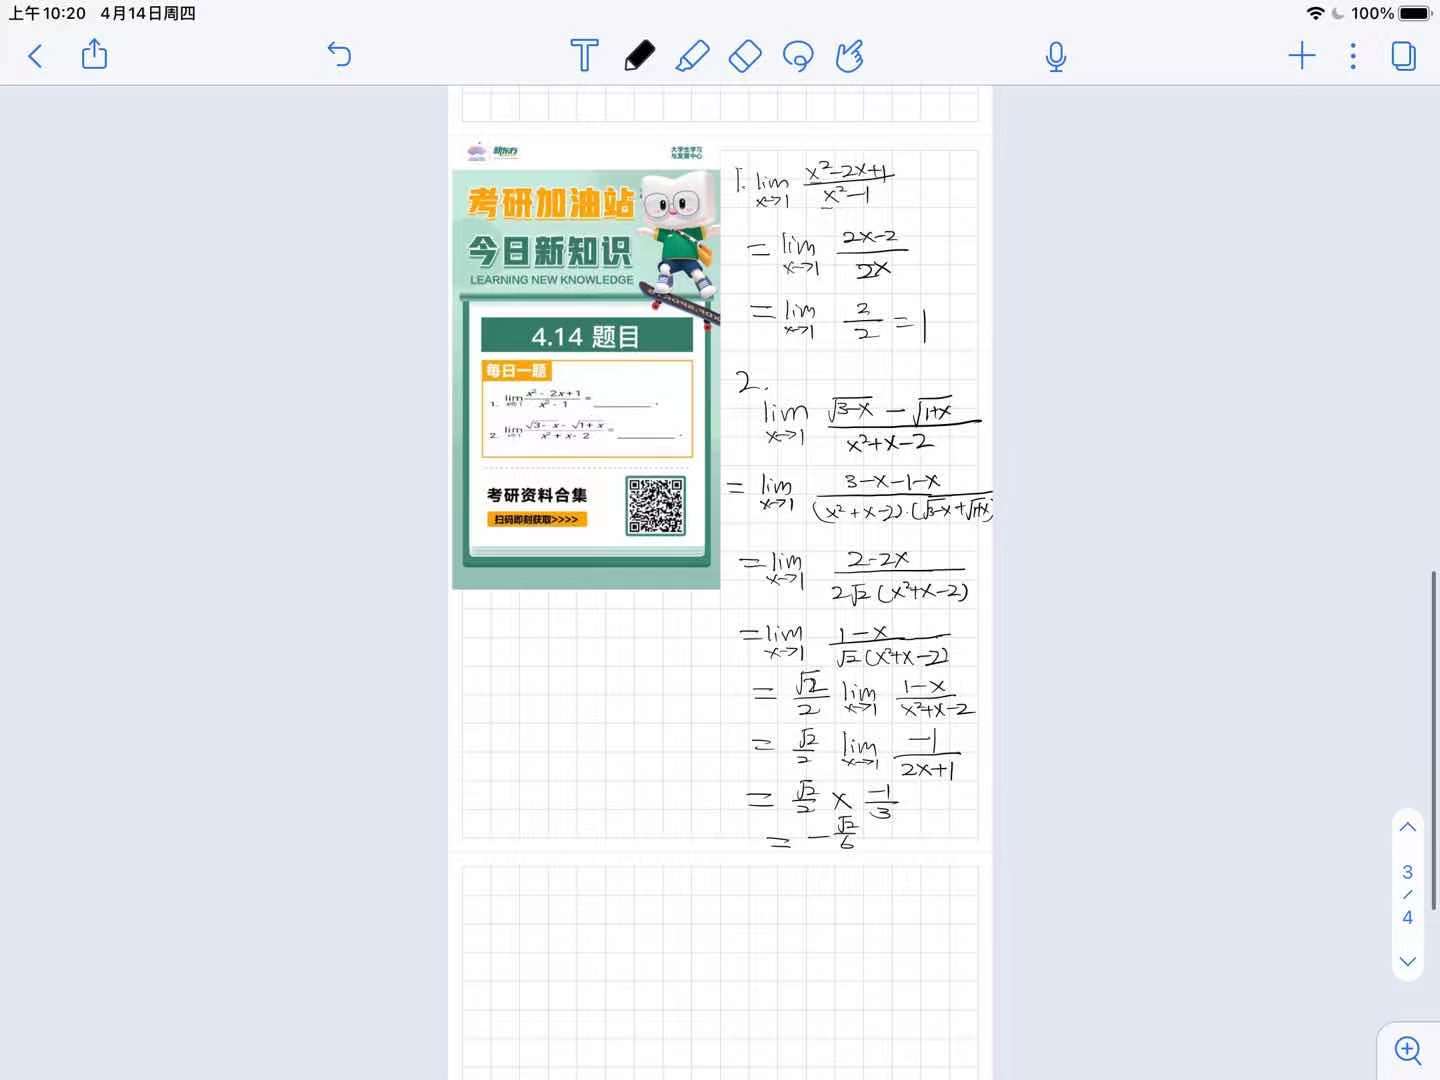 上午10:20 4月14日周四
100%
T
新东方
大学生学习
与发展中心
考研加油站
今日新知识
LEARNING NEW KNOWLEDGE
4.14 题目
每日一题
1. lim x→1 (x² - 2x+1)/(x² - 1) = ________ .
2. lim x→1 (√3- x - √1+ x)/(x² + x- 2) = ________ .
考研资料合集
扫码即刻获取>>>>
1. lim x→1 (x²-2x+1)/(x²-1)
= lim x→1 (2x-2)/(2x)
= lim x→1 2/2 = 1
2.
lim x→1 (√3-x - √1+x)/(x²+x-2)
= lim x→1 (3-x-1-x)/((x²+x-2)·(√3-x+√1+x))
= lim x→1 (2-2x)/(2√2(x²+x-2))
= lim x→1 (1-x)/(√2(x²+x-2))
= √2/2 lim x→1 (1-x)/(x²+x-2)
= √2/2 lim x→1 -1/(2x+1)
= √2/2 × -1/3
= -√2/6
3
/
4